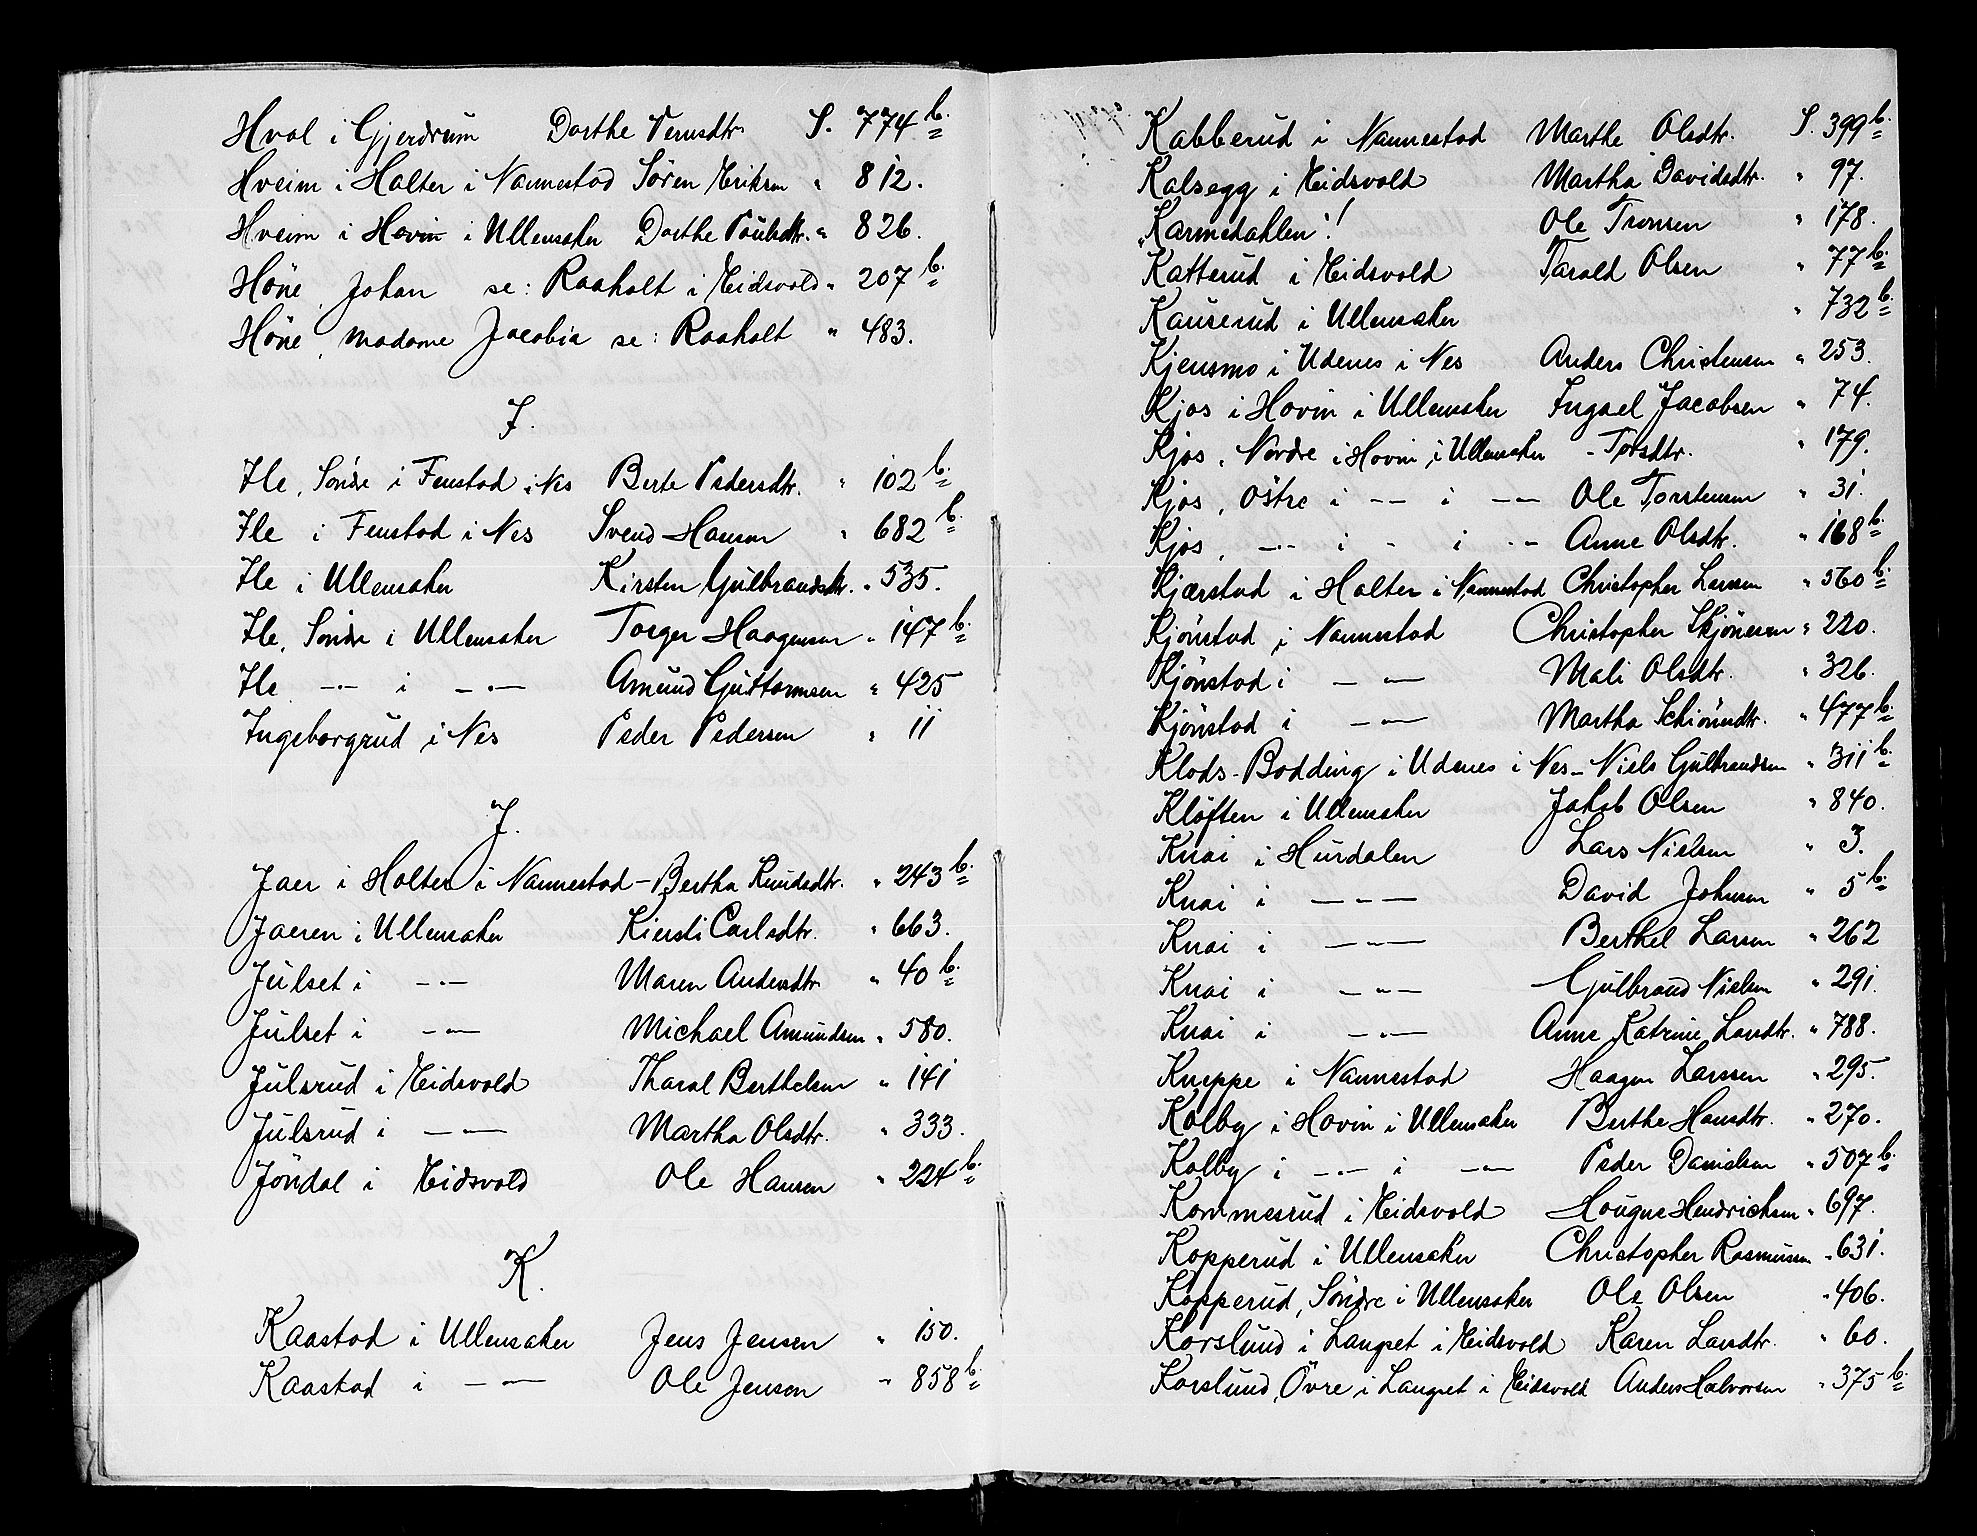 Hval i Gjerdrum Dorthe Pernsdtr S. 774 b.
Hveim i Holter i Nannestad Sören Eriksen " 812.
Hveim i Hovin i Ullensaker Dorthe Poulsdtr. " 826.
Höne, Johan se: Raaholt i Eidsvold " 207 b.
Höne, madame Jacobia se: Raaholt " 483.
I.
Ile, Söndre i Fenstad i Nes Berte Pedersdtr. " 102 b.
Ile i Fenstad i Nes Svend Hansen " 682 b.
Ile i Ullensaker Kirsten Gulbrandsdtr. " 535.
Ile, Söndre i Ullensaker Torger Haagensen " 147 b.
Ile —"— i —"— Amund Guttormsen " 425
Ingeborgrud i Nes Peder Pedersen " 11
J.
Jaer i Holter i Nannestad - Bertha Knudsdtr. " 243 b.
Jaeren i Ullensaker Kiersti Carlsdtr. " 663.
Julset i —"— Maren Andersdtr " 40 b.
Julset i —"— Michael Amundsen " 580.
Julsrud i Eidsvold Tharal Berthelsen " 141
Julsrud i —"— Martha Olsdtr. " 333.
Jöndal i Eidsvold Ole Hansen " 224 b.
K.
Kaastad i Ullensaker Jens Jensen " 150.
Kaastad i —"— Ole Jensen " 858 b.
Kabberud i Nannestad Marthe Olsdtr. S. 399 b.
Kalsegg i Eidsvold Martha Davidsdtr. " 97.
"Karmedahlen"! Ole Tronsen " 178.
Katterud i Eidsvold Tarald Olsen " 77 b.
Kauserud i Ullensaker " 732 b.
Kjensmo i Udenes i Nes Anders Christensen " 253.
Kjos i Hovin i Ullensaker Ingael Jacobsen " 74.
Kjos, Nordre i Hovin i Ullensaker - Torsdtr. " 179.
Kjos, Östre i —— i —"— Ole Torstensen " 31.
Kjos, —"— i " i —"— Anne Olsdtr. " 168 b.
Kjærstad i Holter i Nannestad Christopher Larsen " 560 b.
Kjönstad i Nannestad Christopher Skjönesen " 220.
Kjönstad i —"— Mali Olsdtr. " 326.
Kjönstad i —"— Martha Schiönndtr. " 477 b.
Klods-Bodding i Udenes i Nes - Niels Gulbrandsen " 311 b.
Klöften i Ullensaker Jakob Olsen " 840.
Knai i Hurdalen Lars Nielsen " 3.
Knai i —"— David Johnsen " 5 b.
Knai i —"— Berthel Larsen " 262
Knai i —"— Gulbrand Nielsen " 291.
Knai i —"— Anne Katrine Larsdtr. " 788.
Kneppe i Nannestad Haagen Larssen " 295.
Kolby i Hovin i Ullensaker Berthe Hansdtr. " 270.
Kolby i —"— i —"— Peder Danielsen " 507 b.
Kommesrud i Eidsvold Hougne Hendrichsen " 697.
Kopperud i Ullensaker Christopher Rasmussen " 631.
Kopperud, Söndre i Ullensaker Ole Olsen " 406.
Korslund i Langset i Eidsvold Karen Larsdtr. " 60.
Korslund, Övre i Langset i Eidsvold Anders Halvorsen " 375 b.